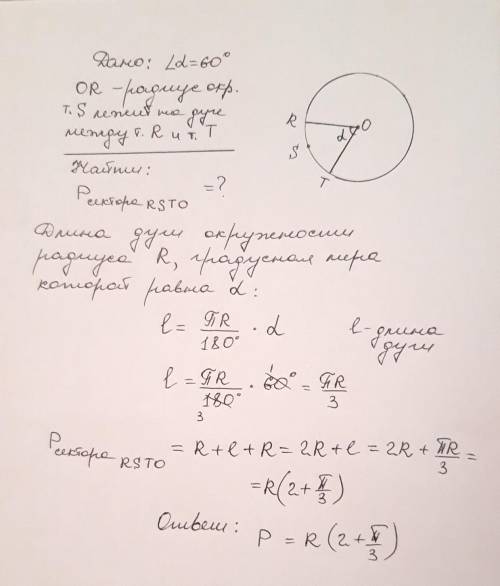 Дано: ∠α=60°
OR - радиус окр.
т. S лежит на дуге
между т. R и т. T
Найти:
Pсектора RSTO = ?
R
S
T
O
α
Длина дуги окружности
радиуса R, градусная мера
которой равна α:
l = ПR/180° · α
l - длина
дуги
l = ПR/180° · 60° = ПR/3
1
3
Pсектора RSTO = R + l + R = 2R + l = 2R + ПR/3 =
= R(2 + П/3)
Ответ: P = R(2 + П/3)